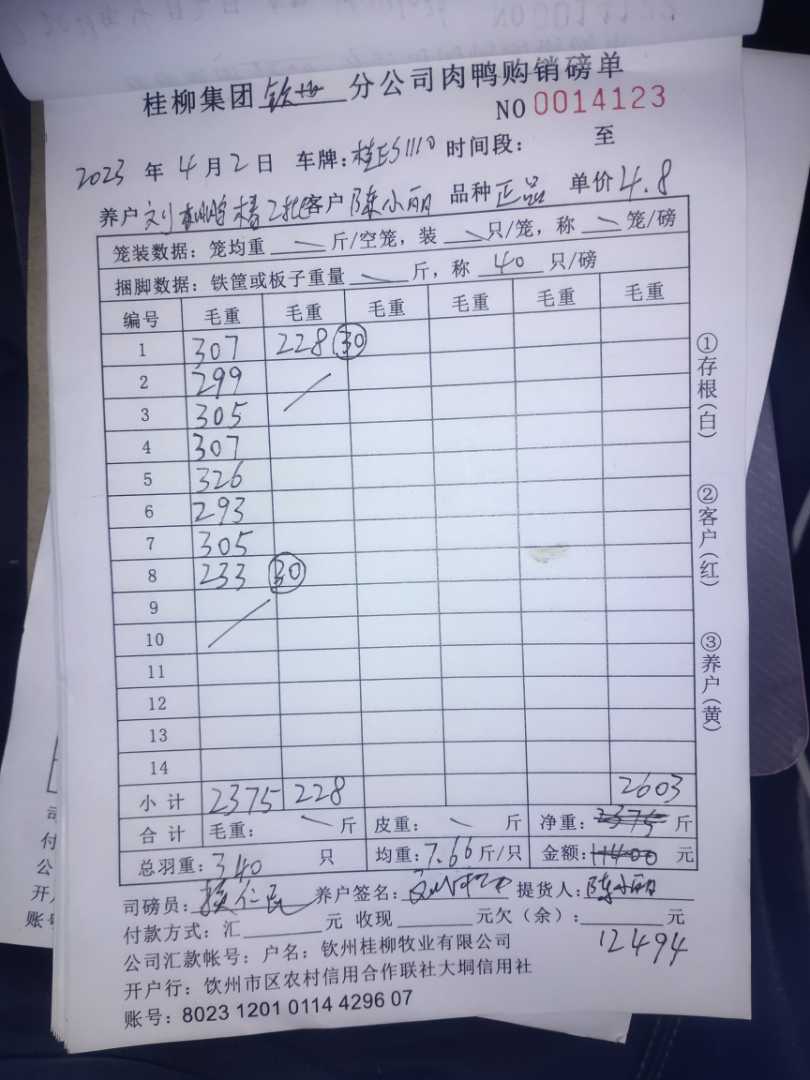 桂柳集团 钦州 分公司肉鸭购销磅单
NO 0014123
2023 年 4 月 2 日 车牌: 桂E51110 时间段: 至
养户 刘 2批客户 陈小丽 品种 正品 单价 4.8
笼装数据: 笼均重 斤/空笼, 装 只/笼, 称 笼/磅
捆脚数据: 铁筐或板子重量 斤, 称 40 只/磅
编号 毛重 毛重 毛重 毛重 毛重 毛重
1 307 228 30
2 299
3 305
4 307
5 326
6 293
7 305
8 233 30
9
10
11
12
13
14
小计 2375 228 2603
合计 毛重: 斤 皮重: 斤 净重: 2375 斤
总羽重: 340 只 均重: 7.66 斤/只 金额: 11400 元
司磅员: 养户签名: 提货人: 陈小丽
付款方式: 汇 元 收现 元欠(余): 元
12494
公司汇款帐号: 户名: 钦州桂柳牧业有限公司
开户行: 钦州市区农村信用合作联社大垌信用社
账号: 8023 1201 0114 4296 07
①存根(白)
②客户(红)
③养户(黄)